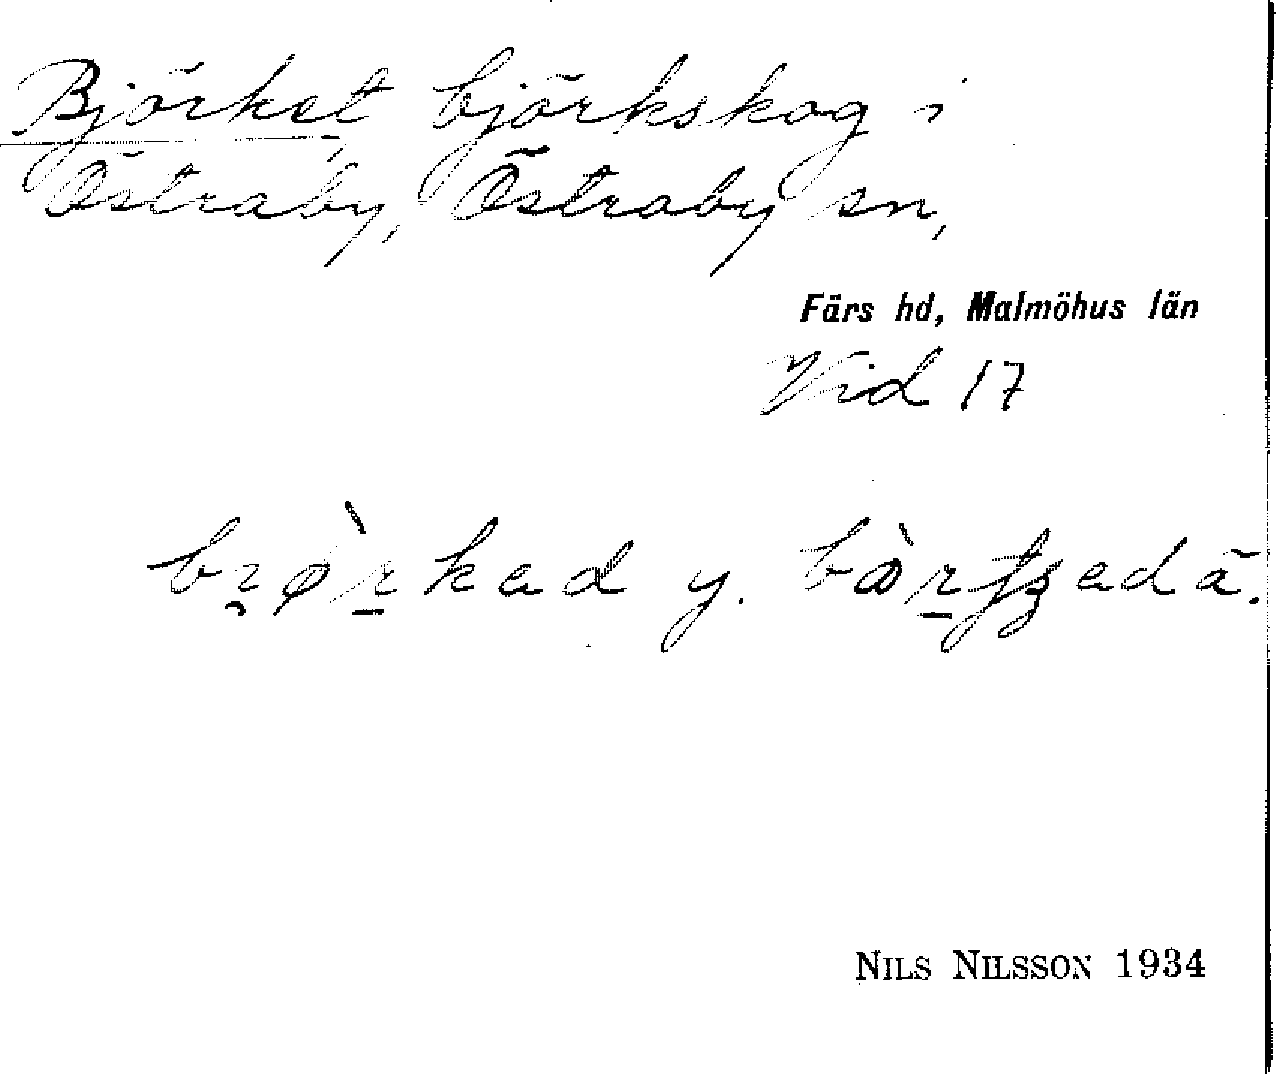 Björket, björkskog i
Östraby, Östraby sn,
Färs hd, Malmöhus län
Vid 17
y. ä.
NILS NILSSON 1934